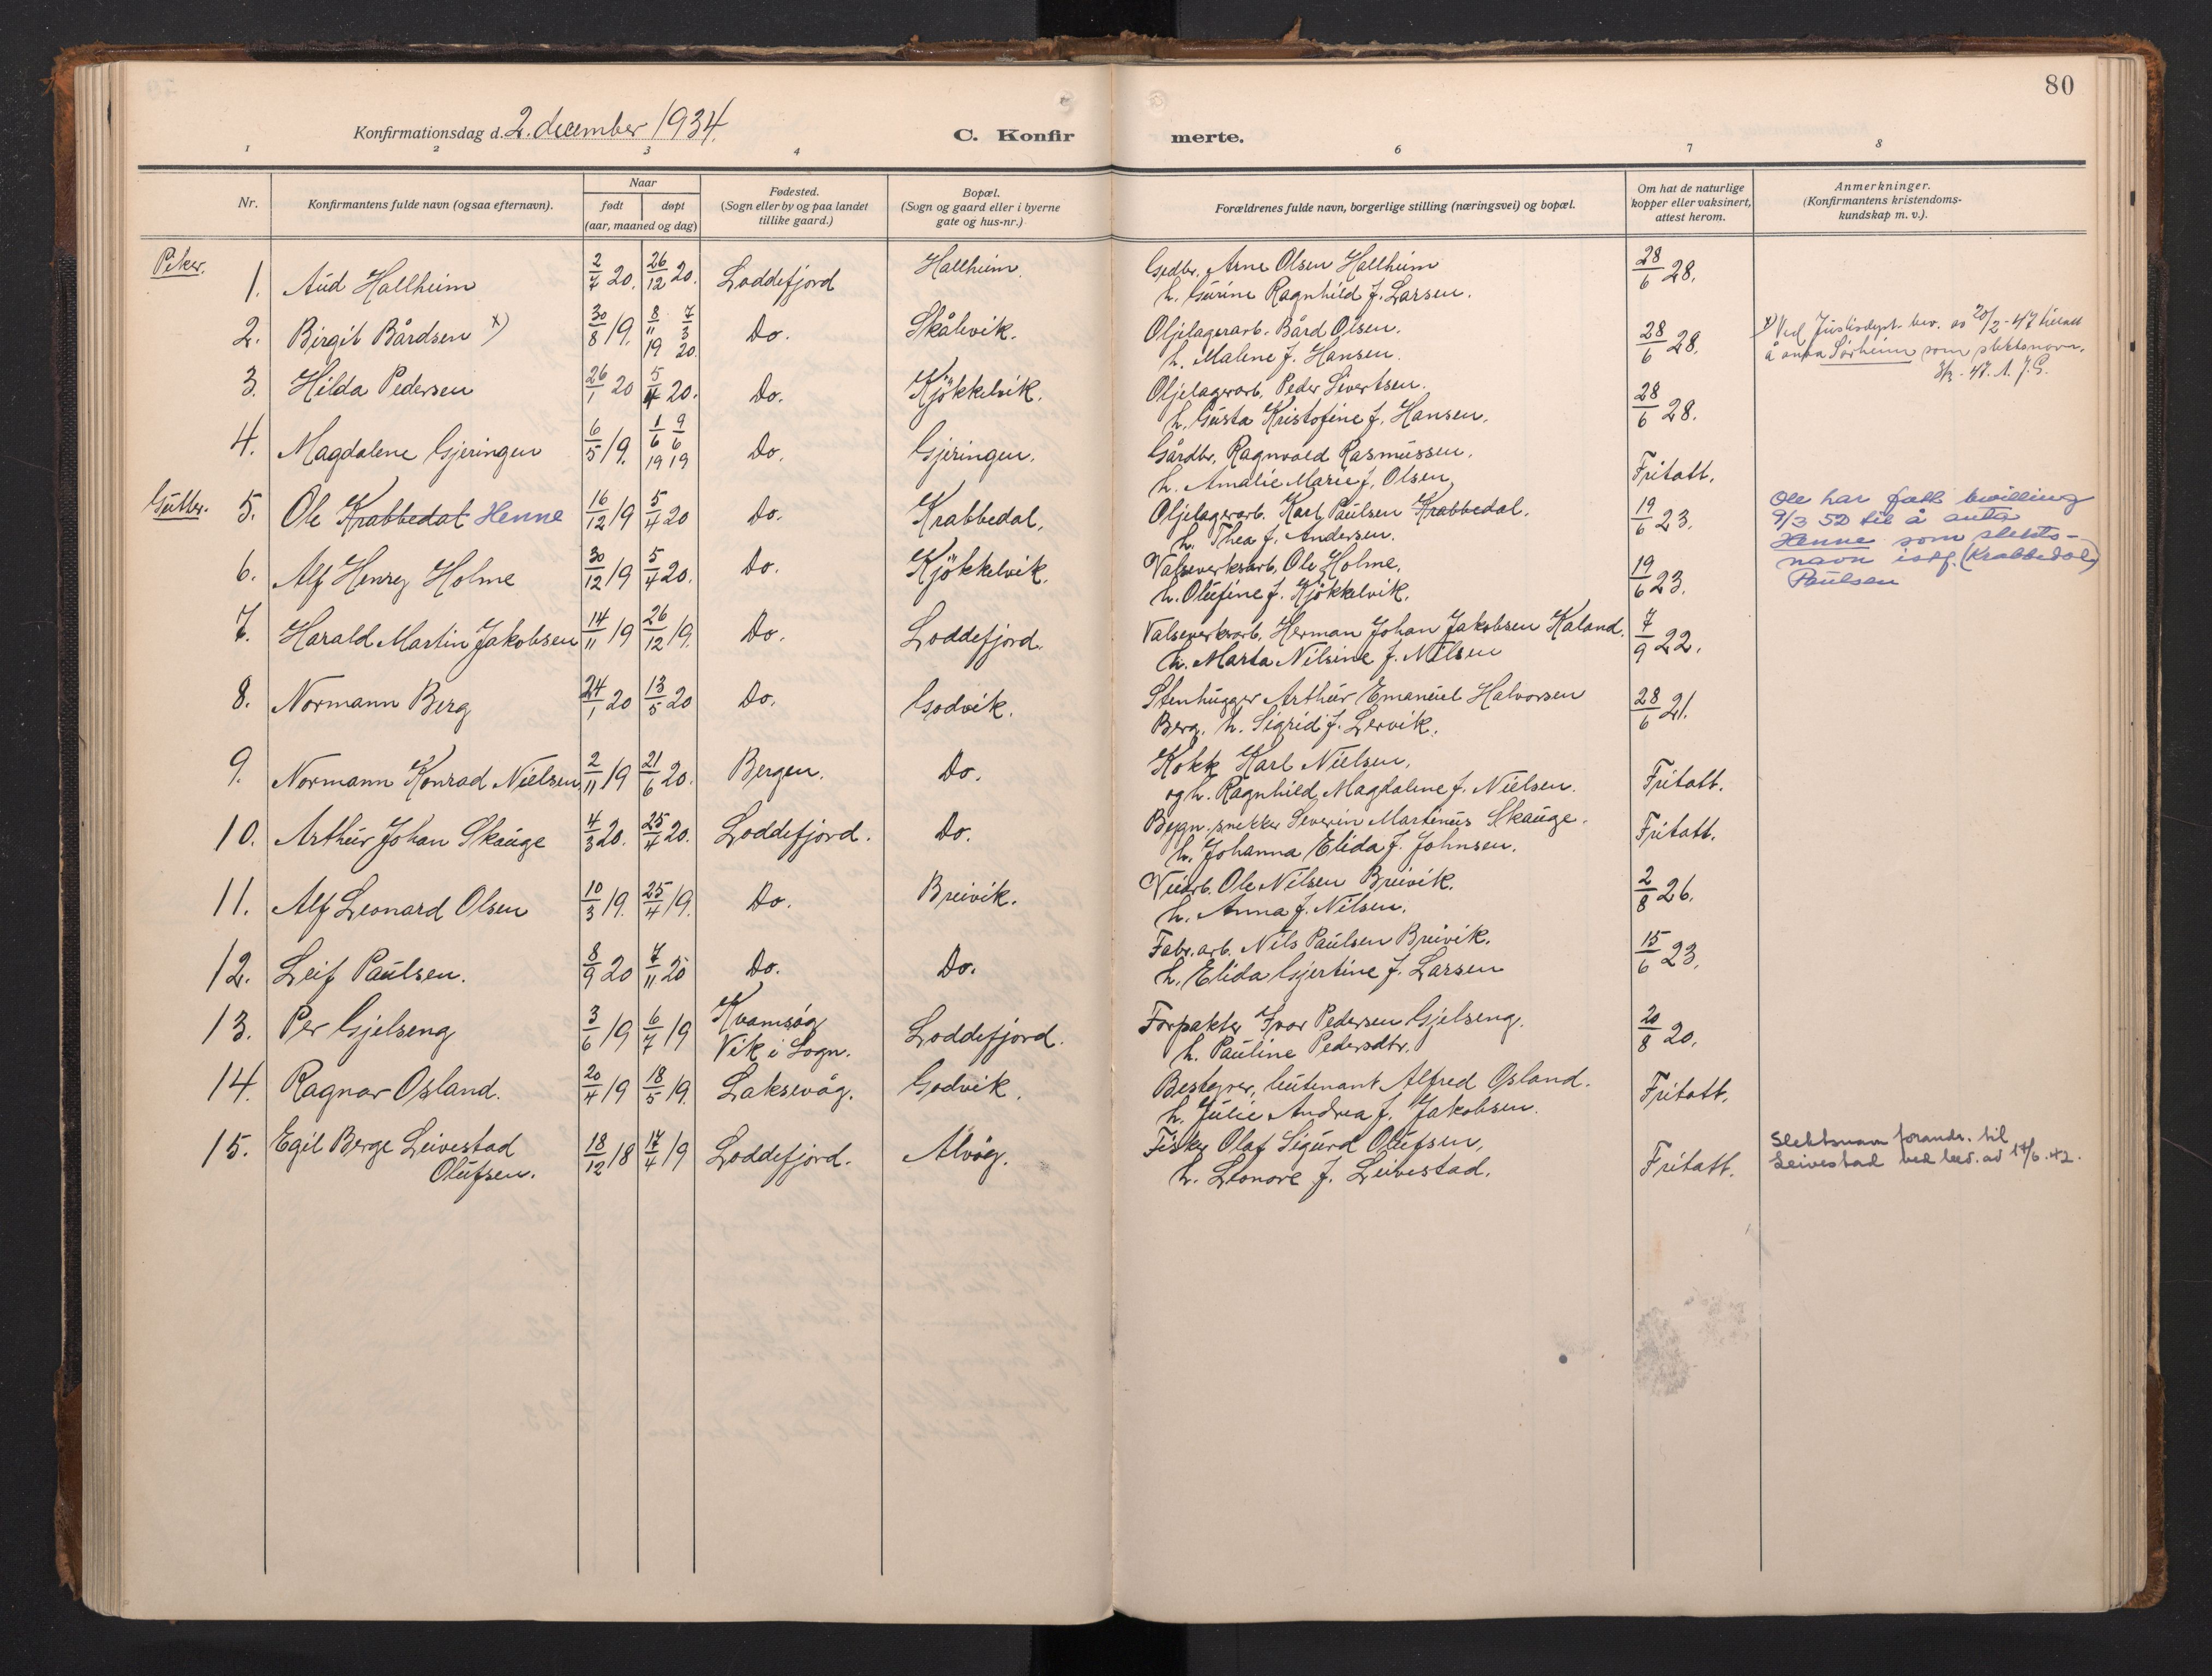 80
Konfirmationsdag d. 2. december 1934.
C. Konfirmerte.
1 2 3 4 6 7 8
Nr.
Konfirmantens fulde navn (ogsaa efternavn).
Naar
født døpt
(aar, maaned og dag)
Fødested.
(Sogn eller by og paa landet
tillike gaard.)
Bopæl.
(Sogn og gaard eller i byerne
gate og hus-nr.)
Forældrenes fulde navn, borgerlige stilling (næringsvei) og bopæl.
Om hat de naturlige
kopper eller vaksinert,
attest herom.
Anmerkninger.
(Konfirmantens kristendoms-
kundskap m. v.).
Piker.
1. Aud Hallheim 2/4 20. 26/12 20. Loddefjord Hallheim. Gedbr. Arne Olsen Hallheim 28/6 28.
h. Gurine Ragnhild f. Larsen.
2. Birgit Bårdsen x) 30/8 19. 8/11 19 7/3 20 Do. Skålevik. Oljelagerarb. Bård Olsen. 28/6 28.
h. Malene f. Hansen.
x) Ved Justisdept. bev. av 20/2-47 tillatt
å anta Sørheim som slektsnavn.
3/3-47. A. J. G.
3. Hilda Pedersen 26/1 20 5/4 20. Do. Kjökkelvik. Oljelagerarb. Peder Sivertsen. 28/6 28.
h. Gusta Kristofine f. Hansen.
4. Magdalene Gjeringen 6/5 19. 1/6 19 9/6 19 Do. Gjeringen. Gårdbr. Ragnvald Rasmussen. Fritatt.
h. Amalie Marie f. Olsen
Gutter.
5. Ole Krabbedal Henne 16/12 19 5/4 20 Do. Krabbedal. Oljelagerarb. Karl Paulsen Krabbedal. 19/6 23.
h. Thea f. Andersen.
Ole har fått bevilling
9/3 52 til å anta
Henne som slekts-
navn istf. (Krabbedal)
Paulsen
6. Alf Henry Holme 30/12 19 5/4 20. Do. Kjökkelvik. Valseverksarb. Ole Holme. 19/6 23.
h. Olufine f. Kjökkelvik.
7. Harald Martin Jakobsen 14/11 19 26/12 19. Do. Loddefjord. Valseverksarb. Herman Johan Jakobsen Kaland. 7/9 22.
h. Marta Nilsine f. Nilsen
8. Normann Berg 24/1 20 13/5 20 Do. Godvik. Stenhugger Arthur Emanuel Halvorsen 28/6 21.
Berg. h. Sigrid f. Lervik.
9. Normann Konrad Nielsen 2/11 19 21/6 20. Bergen. Do. Kokk Karl Nielsen. Fritatt.
og h. Ragnhild Magdalene f. Nielsen.
10. Arthur Johan Skauge 4/3 20. 25/4 20. Loddefjord. Do. Bygn. snekker Severin Martinus Skauge. Fritatt.
h. Johanna Elida f. Johnsen.
11. Alf Leonard Olsen 10/3 19. 25/4 19. Do. Breivik. Veiarb. Ole Nilsen Breivik. 2/8 26.
h. Anna f. Nilsen.
12. Leif Paulsen. 8/9 20 7/11 20 Do. Do. Fabr. arb. Nils Paulsen Breivik. 15/6 23.
h. Elida Gjertine f. Larsen
13. Per Gjelseng 3/6 19 6/7 19 Kvamsøy Loddefjord. Forpakter Ivar Pedersen Gjelseng. 20/8 20.
Vik i Sogn. h. Pauline Pedersdtr.
14. Ragnar Osland. 20/4 19 18/5 19. Laksevåg. Godvik. Bestyrer, leutenant Alfred Osland. Fritatt.
h. Julie Andrea f. Jakobsen.
15. Egil Berge Leivestad 18/12 18 17/4 19 Loddefjord. Alvøy. Fisker Olaf Sigurd Olufsen, Fritatt.
Olufsen. h. Leonore f. Leivestad.
Slektsnavn forandr. til
Leivestad ved bev. av 17/6.42.